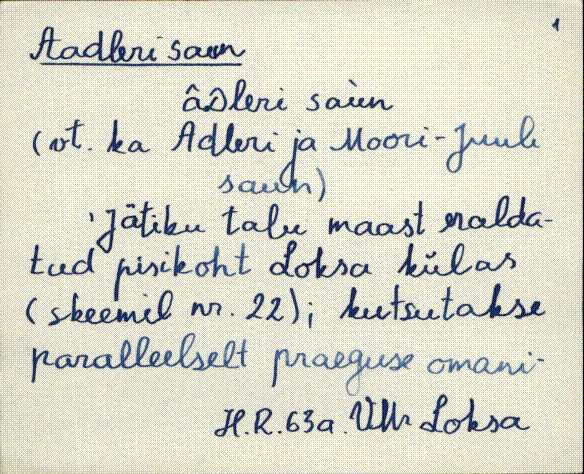 1
Aadleri saun
âDleri saùn
(vt. ka Adleri ja Moori-Juuli
saun)
'Jätiku talu maast eralda-
tud pisikoht Loksa külas
(skeemil nr. 22); kutsutakse
paralleelselt praeguse omani-
H.R. 63a. Loksa